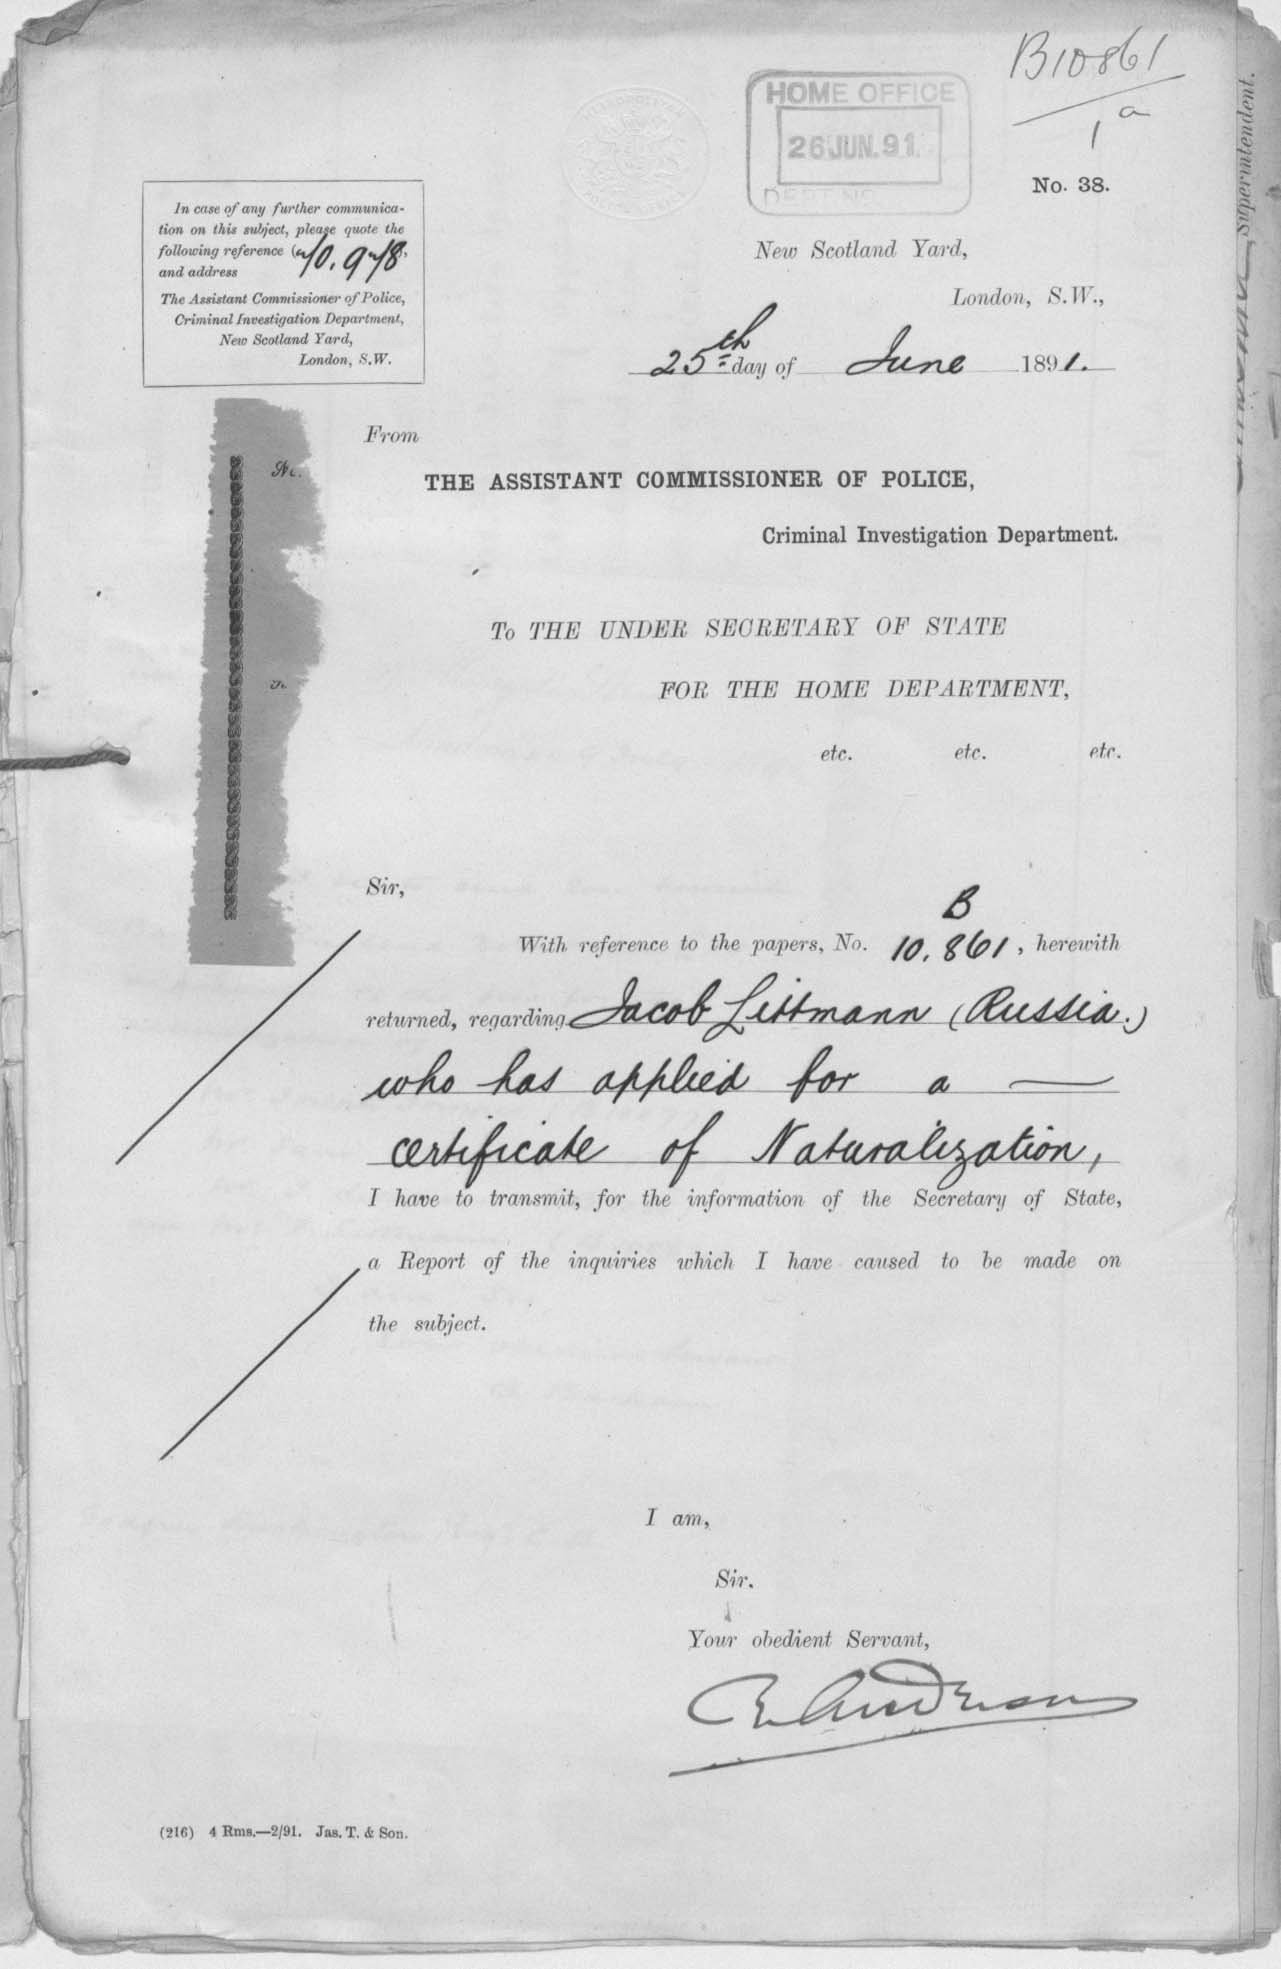 B10861
1 a
HOME OFFICE
26 JUN. 91
DEPT. NO.
No. 38.
In case of any further communica-
tion on this subject, please quote the
following reference
and address
The Assistant Commissioner of Police,
Criminal Investigation Department,
New Scotland Yard,
London, S.W.
New Scotland Yard,
London, S.W.,
25th day of June 1891.
From
THE ASSISTANT COMMISSIONER OF POLICE,
Criminal Investigation Department.
To THE UNDER SECRETARY OF STATE
FOR THE HOME DEPARTMENT,
etc. etc. etc.
Sir,
B
With reference to the papers, No. 10,861, herewith
returned, regarding Jacob Littmann (Russia.)
who has applied for a —
certificate of Naturalization,
I have to transmit, for the information of the Secretary of State,
a Report of the inquiries which I have caused to be made on
the subject.
I am,
Sir.
Your obedient Servant,
R Anderson
(216) 4 Rms.—2/91. Jas. T. & Son.
Superintendent.